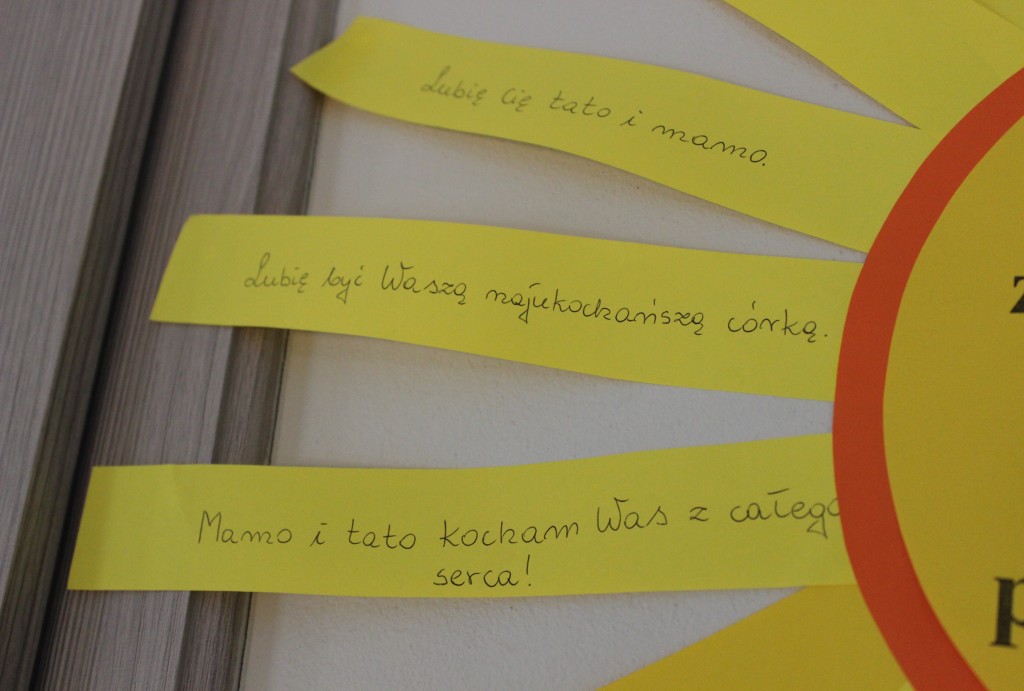 Lubię Cię tato i mamo.
Lubię być Waszą najukochańszą córką.
Mamo i tato kocham Was z całego
serca!
z
p